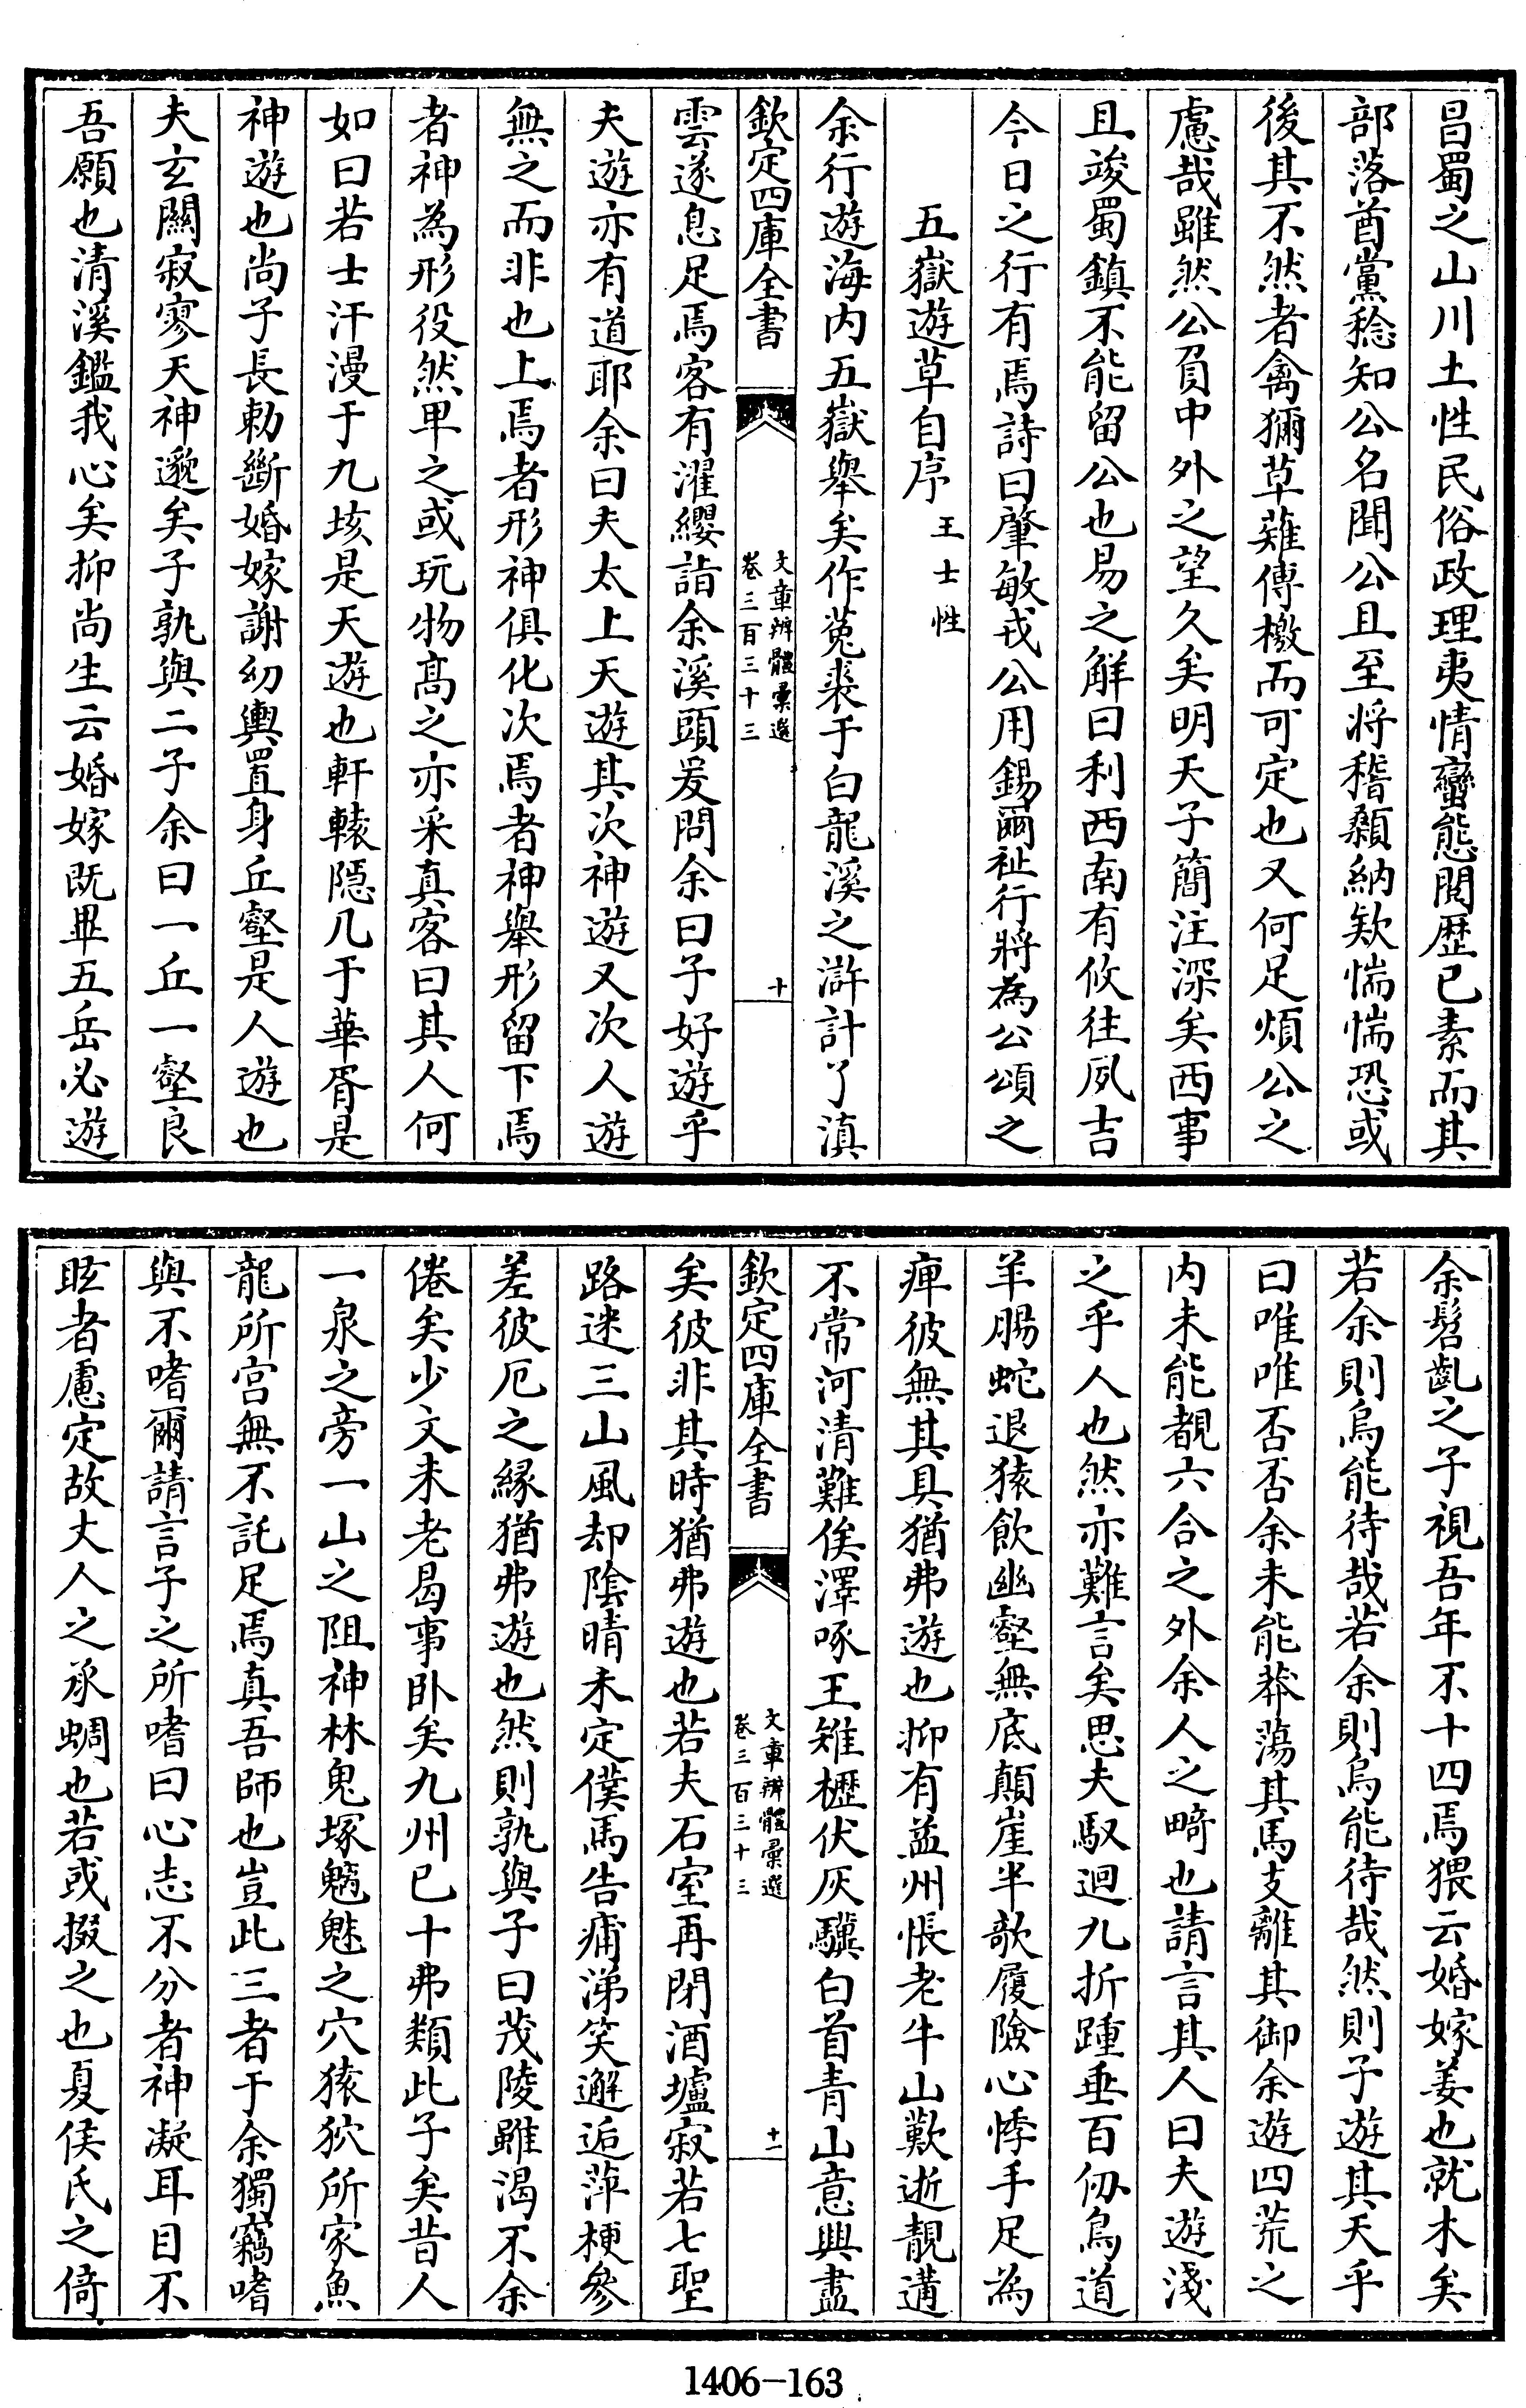 昌蜀之山川土性民俗政理夷情蠻態閲歷已素而其
部落酋黨稔知公名聞公且至將稽顙納欵惴惴恐或
後其不然者禽獮草薙傳檄而可定也又何足煩公之
慮哉雖然公負中外之望久矣明天子簡注深矣西事
且竣蜀鎮不能留公也易之解曰利西南有攸往夙吉
今日之行有焉詩曰肇敏戎公用錫爾祉行將為公頌之
五嶽遊草自序 王士性
余行遊海内五嶽舉矣作菟裘于白龍溪之滸計了滇
欽定四庫全書 文章辨體彙選 卷三百三十三 十
雲遂息足焉客有濯纓詣余溪頭爰問余曰子好遊乎
夫遊亦有道耶余曰夫太上天遊其次神遊又次人遊
無之而非也上焉者形神俱化次焉者神舉形留下焉
者神為形役然卑之或玩物高之亦采真客曰其人何
如曰若士汗漫于九垓是天遊也軒轅隱几于華胥是
神遊也尚子長勅斷婚嫁謝幼輿置身丘壑是人遊也
夫玄關寂寥天神邈矣子孰與二子余曰一丘一壑良
吾願也清溪鑑我心矣抑尚生云婚嫁既畢五岳必遊
余髫齓之子視吾年不十四焉猥云婚嫁姜也就木矣
若余則烏能待哉若余則烏能待哉然則子遊其天乎
曰唯唯否否余未能莽蕩其馬支離其御余遊四荒之
内未能覩六合之外余人之畸也請言其人曰夫遊淺
之乎人也然亦難言矣思夫馭迴九折踵垂百仭鳥道
羊腸蛇退猿飲幽壑無底顛崖半欹履險心悸手足為
痺彼無其具猶弗遊也抑有益州悵老牛山歎逝靚遘
不常河清難俟澤啄王雉櫪伏灰驥白首青山意興盡
欽定四庫全書 文章辨體彙選 卷三百三十三 十一
矣彼非其時猶弗遊也若夫石室再閉酒壚寂若七聖
路迷三山風却陰晴未定僕馬告痡涕笑邂逅萍梗參
差彼厄之縁猶弗遊也然則孰與子曰茂陵雖渴不余
倦矣少文未老曷事卧矣九州已十弗類此子矣昔人
一泉之旁一山之阻神林鬼塚魑魅之穴猿狖所家魚
龍所宫無不託足焉真吾師也豈此三者于余獨竊嗜
與不嗜爾請言子之所嗜曰心志不分者神凝耳目不
眩者慮定故丈人之承蜩也若或掇之也夏侯氏之倚
1406-163